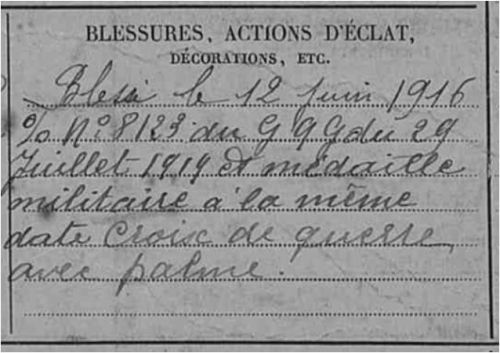 BLESSURES, ACTIONS D'ÉCLAT,
DÉCORATIONS, ETC.
Blessé le 12 juin 1916
O/ N° 8123 du G Q G du 29
Juillet 1919 et médaille
militaire à la même
date Croix de guerre
avec palme.